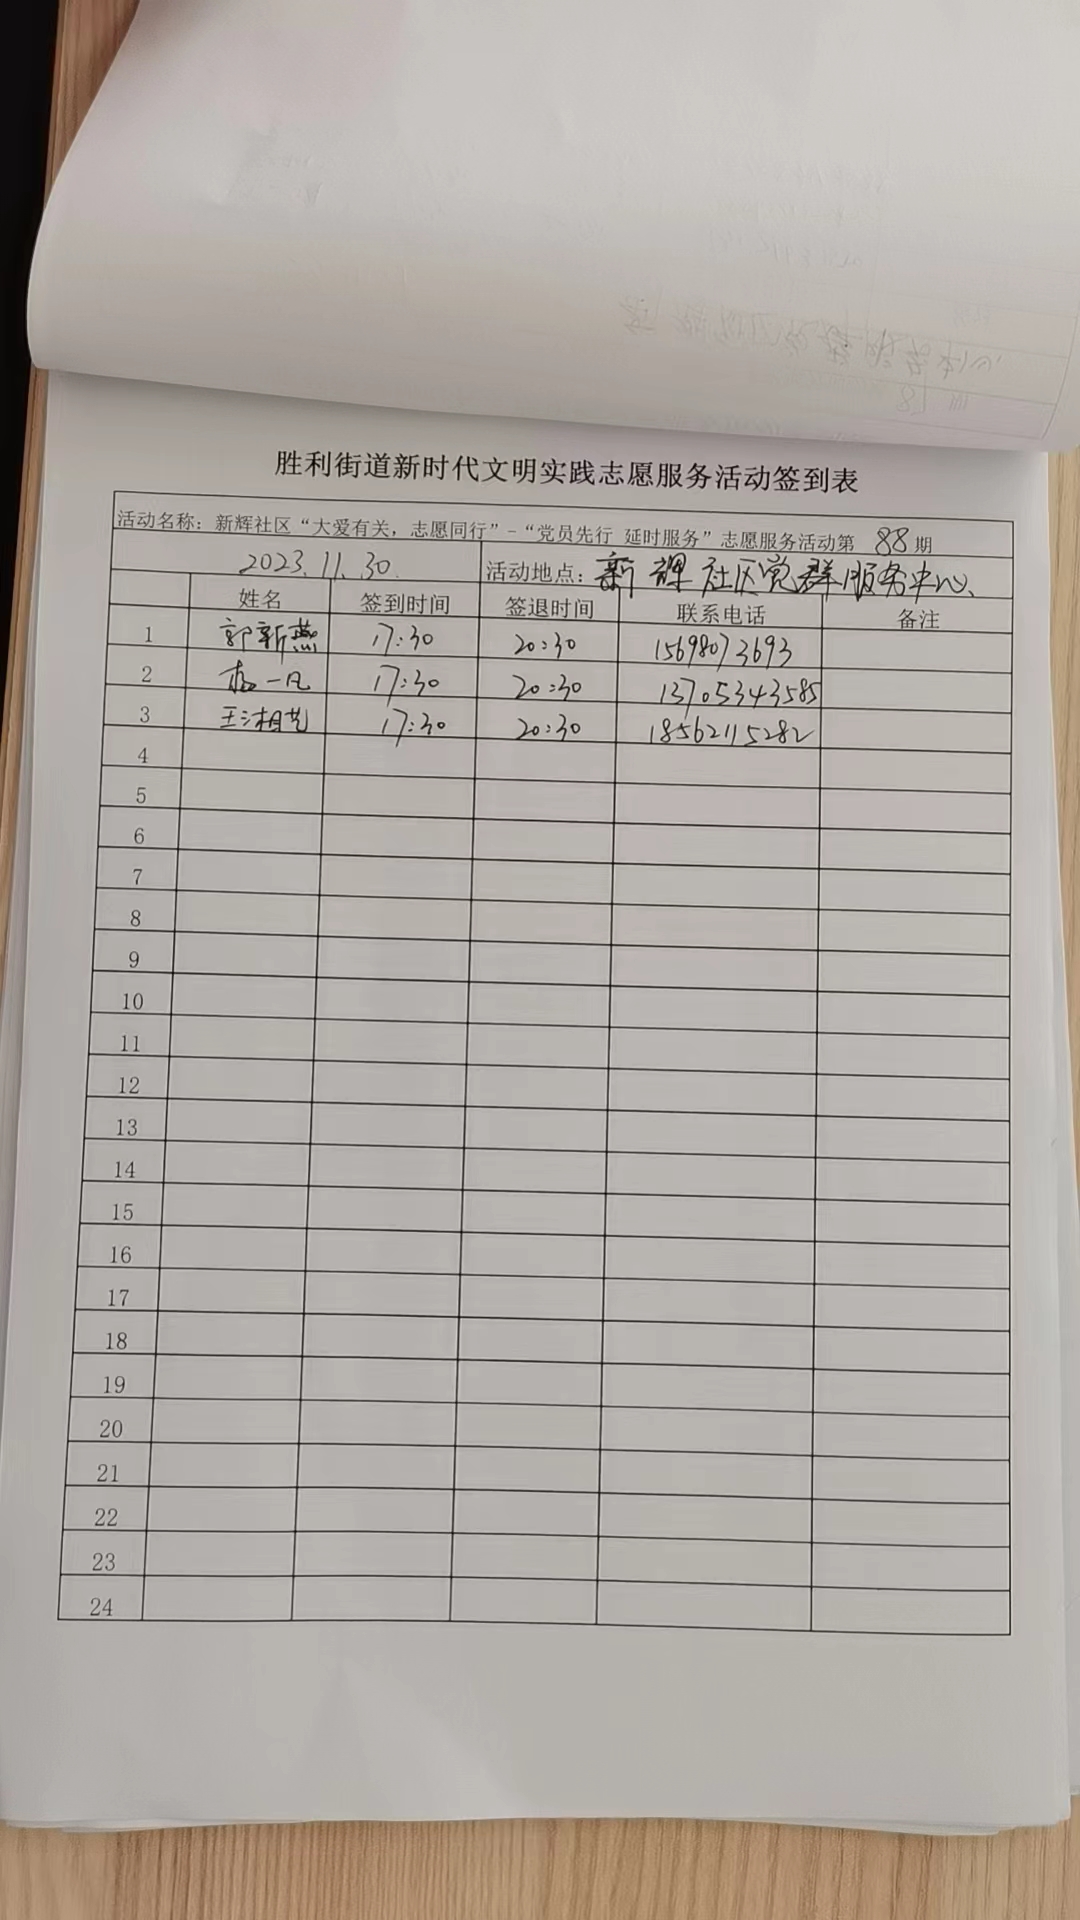 胜利街道新时代文明实践志愿服务活动签到表
活动名称：新辉社区“大爱有关，志愿同行”-“党员先行 延时服务”志愿服务活动第 88 期
2023.11.30. 活动地点：新辉社区党群服务中心、
姓名 签到时间 签退时间 联系电话 备注
1 郭新燕 17:30 20:30 15698073693
2 一凡 17:30 20:30 13705343585
3 王湘艺 17:30 20:30 18562115282
4
5
6
7
8
9
10
11
12
13
14
15
16
17
18
19
20
21
22
23
24